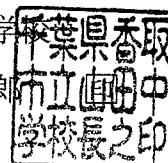 学校
郎
千葉県香取
市立山田中
学校長之印